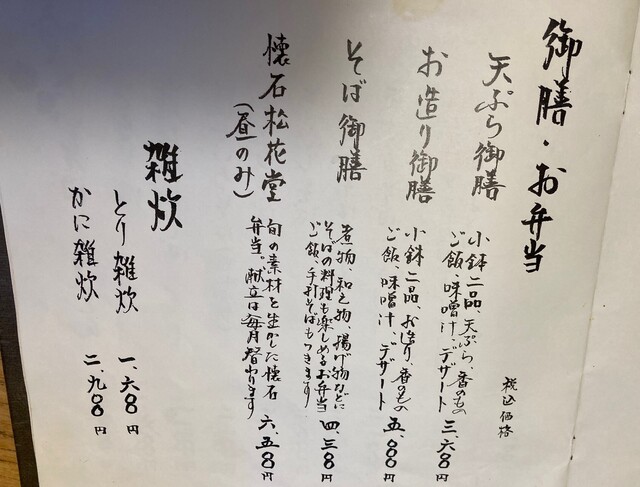 御膳・お弁当
税込価格
天ぷら御膳
小鉢二品、天ぷら、香のもの
ご飯、味噌汁、デザート
三、六〇〇円
お造り御膳
小鉢二品、お造り、香のもの
ご飯、味噌汁、デザート
五、〇〇〇円
そば御膳
煮物、和え物、揚げ物などに
そばの料理も楽しめるお弁当
ご飯、手引そばもつきます
四、三〇〇円
懐石松花堂
(昼のみ)
旬の素材を生かした懐石
弁当。献立は毎月替わります
六、五〇〇円
雑炊
とり雑炊 一、六〇〇円
かに雑炊 二、九〇〇円